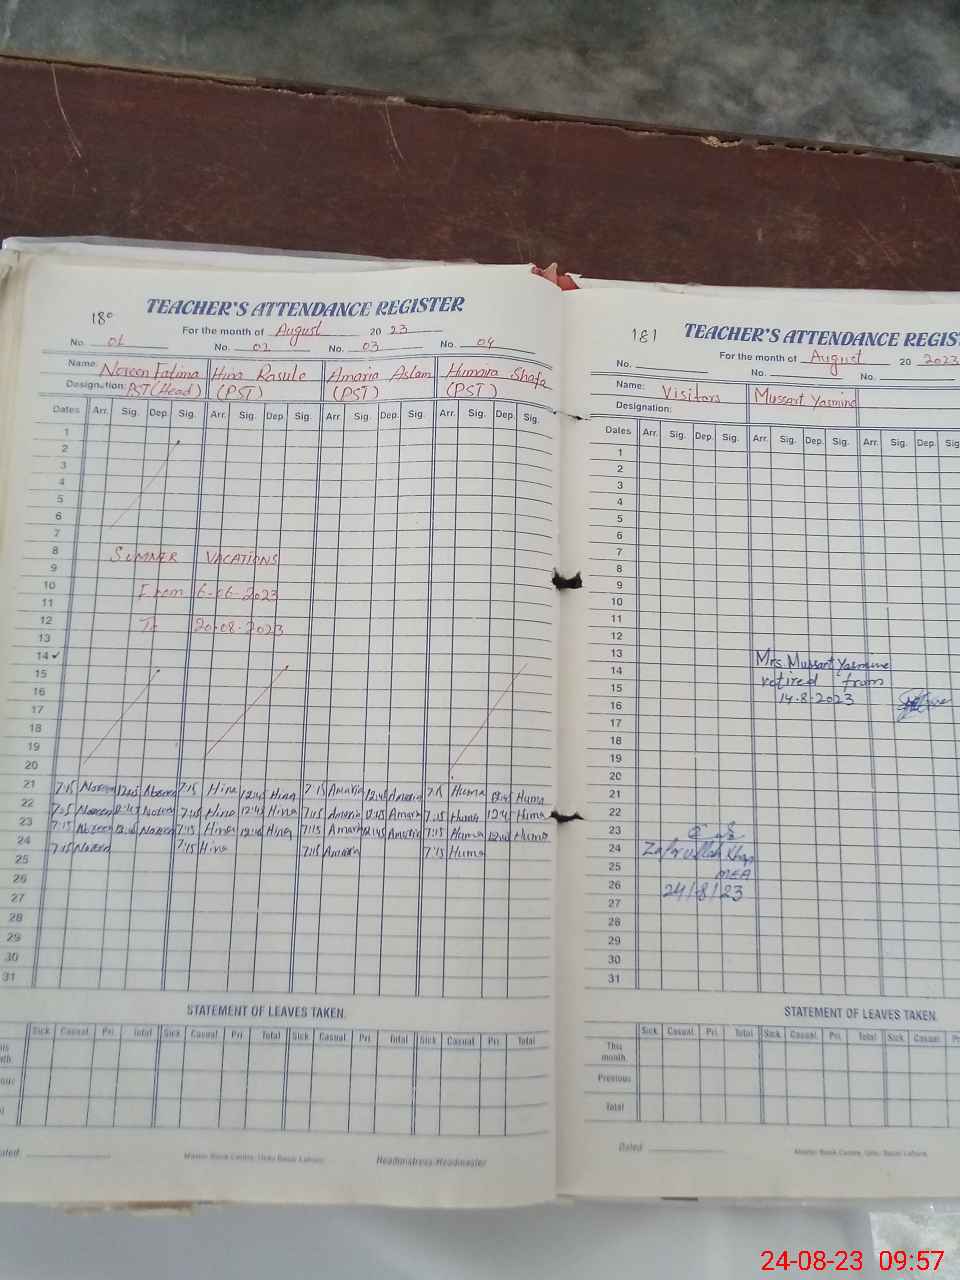 180
TEACHER'S ATTENDANCE REGISTER
For the month of August 20 23
No. 01 No. 02 No. 03 No. 04
Name: Noreen Fatima Hina Rasule Amaria Aslam Humaira Shafa
Designation: PST (Head) (PST) (PST) (PST)
Dates Arr. Sig. Dep. Sig. Arr. Sig. Dep. Sig. Arr. Sig. Dep. Sig. Arr. Sig. Dep. Sig.
1
2
3
4
5
6
7
8 SUMMER VACATIONS
9
10 From 6-06-2023
11
12 To 20-08-2023
13
14 ✓
15
16
17
18
19
20
21 7:15 Noreen 12:45 Noreen 7:15 Hina 12:45 Hina 7:15 Amaria 12:45 Amaria 7:15 Huma 12:45 Huma
22 7:15 Noreen 12:45 Noreen 7:15 Hina 12:45 Hina 7:15 Amaria 12:45 Amaria 7:15 Huma 12:45 Huma
23 7:15 Noreen 12:45 Noreen 7:15 Hina 12:45 Hina 7:15 Amaria 12:45 Amaria 7:15 Huma 12:45 Huma
24 7:15 Noreen 7:15 Hina 7:15 Amaria 7:15 Huma
25
26
27
28
29
30
31
STATEMENT OF LEAVES TAKEN.
Sick Casual. Pri. Total Sick. Casual. Pri. Total Sick Casual. Pri. Total Sick Casual. Pri. Total
Master Book Centre, Urdu Bazar Lahore.
Headmistress/Headmaster
181
TEACHER'S ATTENDANCE REGIS
For the month of August 20 2023
No. No. No.
Name: Visitors Mussart Yasmine
Designation:
Dates Arr. Sig. Dep. Sig. Arr. Sig. Dep. Sig. Arr. Sig. Dep. Sig
1
2
3
4
5
6
7
8
9
10
11
12
13 Mrs Mussart Yasmine
14 retired from
15 14-8-2023
16
17
18
19
20
21
22
23
24 Zafar ullah Khan
25 MEA
26 24/8/23
27
28
29
30
31
STATEMENT OF LEAVES TAKEN.
Sick. Casual. Pri. Total Sick. Casual. Pri. Total Sick. Casual.
This month.
Previous
Total
Dated
Master Book Centre, Urdu Bazar Lahore.
24-08-23 09:57